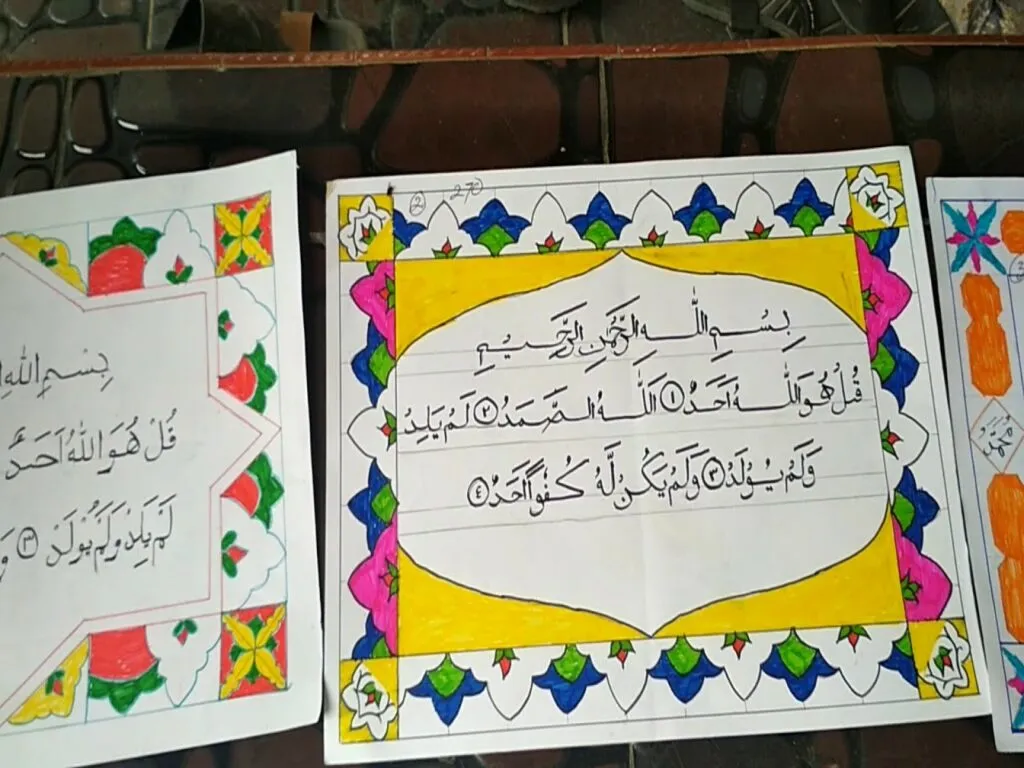 ② 270
بِسْمِ اللّٰهِ الرَّحْمٰنِ الرَّحِيْمِ
قُلْ هُوَ اللّٰهُ اَحَدٌ ① اَللّٰهُ الصَّمَدُ ② لَمْ يَلِدْ
وَلَمْ يُوْلَدْ ③ وَلَمْ يَكُنْ لَّهٗ كُفُوًا اَحَدٌ ④
بِسْمِ اللّٰهِ
قُلْ هُوَ اللّٰهُ اَحَدٌ
لَمْ يَلِدْ وَلَمْ يُوْلَدْ ③ وَ
مُحَمَّد